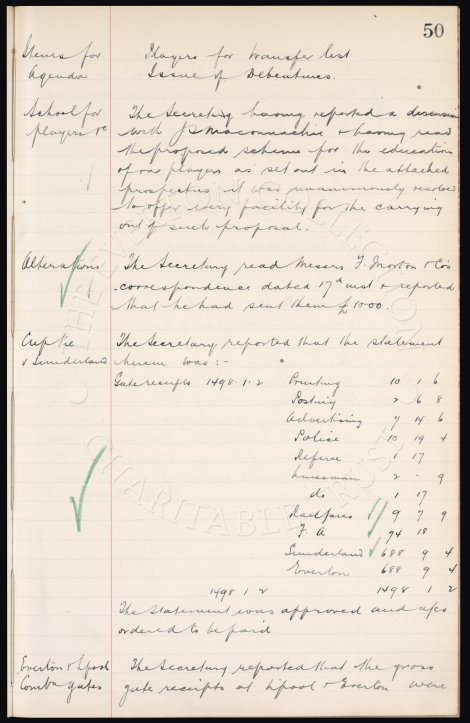 50
Items for Players for transfer list
Agenda Issue of Debentures.
School for The Secretary having reported a discussion
players &c with J S Maconnachie & having read
the proposed scheme for the education
of our players as set out in the attached
prospectus it was unanimously resolved
to offer every facility for the carrying
out of such proposal.
Alterations The Secretary read Messrs F. Morton & Co's
correspondence dated 17th inst & reported
that he had sent them £1000.
Cup tie The Secretary reported that the statement
v Sunderland herein was:-
Gate receipts 1498.1.2 Printing 10 1 6
Posting 2 6 8
Advertising 7 14 6
Police 10 19 4
Referee 1 17
Linesman 2 . 9
do 1 17
Railfares 9 7 9
F. A 74 18
Sunderland 688 9 4
Everton 688 9 4
1498 1 2 1498 1 2
The Statement was approved and a/cs
ordered to be paid
Everton & Lpool The Secretary reported that the gross
Comba gates gate receipts at Lpool & Everton were
THE EVERTON COLLECTION
CHARITABLE TRUST